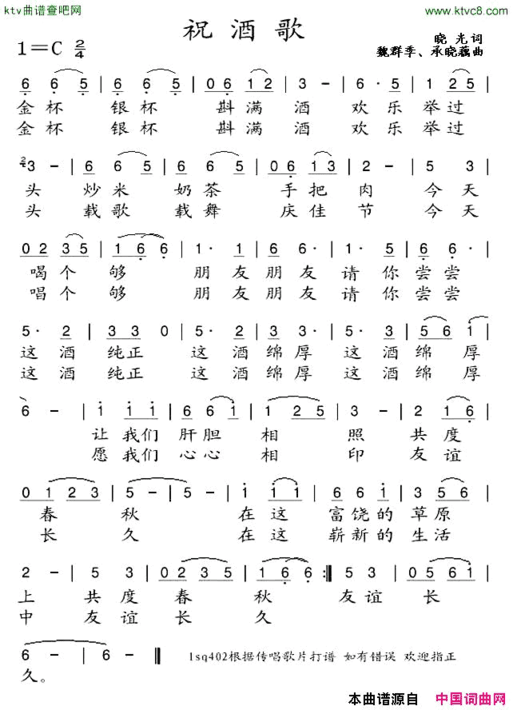 ktv曲谱查吧网 www.ktvc8.com
祝酒歌
1=C 2/4
晓光词
魏群季、承晓藏曲
6 6 5 | 6 6 5 | 0 6 1 2 | 3 - | 6· 5 | 1 2 5 |
金杯 银杯 斟满酒 欢乐举过
金杯 银杯 斟满酒 欢乐举过
2 3 - | 6 6 5 | 6 6 5 | 0 6 1 3 | 2 - | 5 3 |
头 炒米 奶茶 手把肉 今天
头 载歌 载舞 庆佳节 今天
0 2 3 5 | 1 6 6 | 1· 1 | 6 6· | 1· 5 | 6 6 |
喝个 够 朋友朋友请你尝尝
唱个 够 朋友朋友请你尝尝
5· 2 | 3 3 0 | 5· 2 | 3 3 - | 3· 2 | 5 6 1 |
这酒纯正 这酒绵厚 这酒绵厚
这酒纯正 这酒绵厚 这酒绵厚
6 - | 1 1 1 | 6 6 1 | 1 2 5 | 3 - | 2 1 6 |
让我们肝胆相照 共度
愿我们心心相印 友谊
0 1 2 3 | 5 - | 5 - | 1· 1 | 6 6 1 | 1 2 5 |
春秋 在这富饶的草原
长久 在这崭新的生活
2 - | 5 3 | 0 2 3 5 | 1 6 6 :| 2 3 | 0 5 6 1 |
上 共度春秋 友谊长
中 友谊长久
6 - | 6 - ‖ lsq402根据传唱歌片打谱 如有错误 欢迎指正
久。
本曲谱源自 中国词曲网